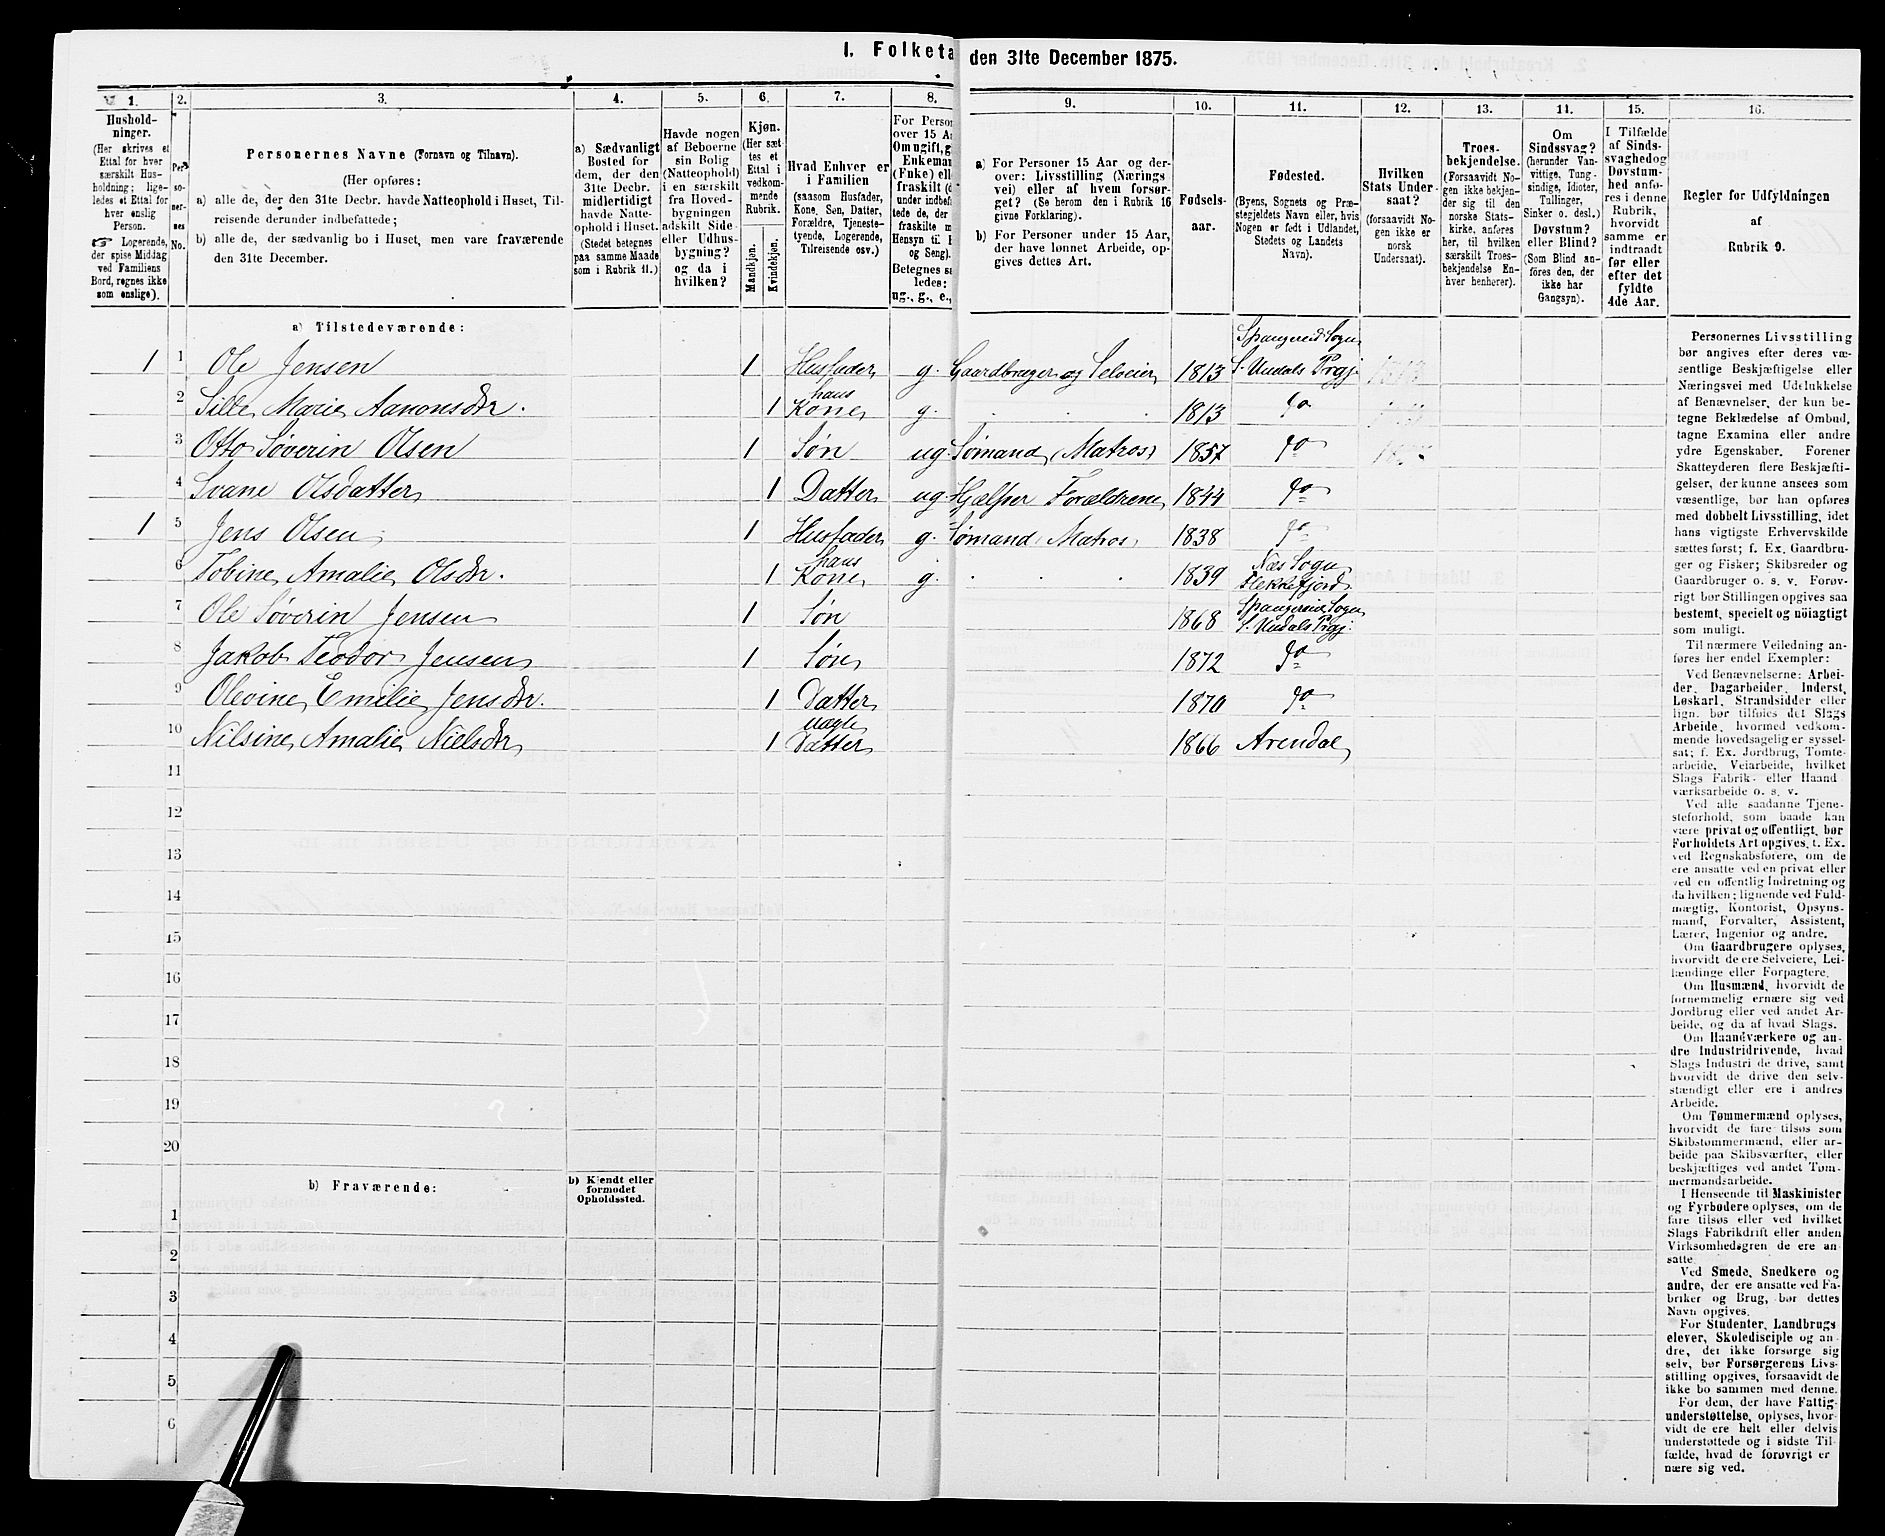 I. Folketa den 31te December 1875.
1.
2.
3.
4.
5.
6.
7.
8.
9.
10.
11.
12.
13.
14.
15.
16.
Hushold-
ninger.
(Her skrives et
Ettal for hver
særskilt Hus-
holdning; lige-
ledes et Ettal for
hver enslig
Person.
☞ Logerende,
der spise Middag
ved Familiens
Bord, regnes ikke
som enslige).
Per-
so-
ner-
nes
No.
Personernes Navne (Fornavn og Tilnavn).
(Her opføres:
a) alle de, der den 31te Decbr. havde Natteophold i Huset, Til-
reisende derunder indbefattede;
b) alle de, der sædvanlig bo i Huset, men vare fraværende
den 31te December.
a) Sædvanligt
Bosted for
dem, der den
31te Decbr.
midlertidigt
havde Natte-
ophold i Huset.
(Stedet betegnes
paa samme Maade
som i Rubrik 11.)
Havde nogen
af Beboerne
sin Bolig
(Natteophold)
i en særskilt
fra Hoved-
bygningen
adskilt Side-
eller Udhus-
bygning?
og da i
hvilken?
Kjøn.
(Her sæt-
tes et
Ettal i
vedkom-
mende
Rubrik.
Mandkjøn.
Kvindekjøn.
Hvad Enhver er
i Familien
(saasom Husfader,
Kone, Søn, Datter,
Forældre, Tjeneste-
tyende, Logerende,
Tilreisende osv.)
For Person
over 15 Aa
Om ugift, g
Enkeman
(Enke) elle
fraskilt (d
under indbef
tede de, der
fraskilte m
Hensyn til B
og Seng).
Betegnes sa
ledes:
ug., g., e.,
a) For Personer 15 Aar og der-
over: Livsstilling (Nærings-
vei) eller af hvem forsør-
get? (Se herom den i Rubrik 16
givne Forklaring).
b) For Personer under 15 Aar,
der have lønnet Arbeide, op-
gives dettes Art.
Fødsels-
aar.
Fødested.
(Byens, Sognets og Præ-
stegjeldets Navn eller, hvis
Nogen er født i Udlandet,
Stedets og Landets
Navn).
Hvilken
Stats Under-
saat?
(forsaavidt No-
gen ikke er
norsk
Undersaat).
Troes-
bekjendelse.
(Forsaavidt No-
gen ikke bekjen-
der sig til den
norske Stats-
kirke, anføres
her, til hvilken
særskilt Troes-
bekjendelse En-
hver henhører).
Om
Sindssvag?
(herunder Van-
vittige, Tung-
sindige, Idioter,
Tullinger,
Sinker o. desl.)
Døvstum?
eller Blind?
(Som Blind an-
føres den, der
ikke har
Gangsyn).
I Tilfælde
af Sinds-
svaghed og
Døvstum-
hed anfø-
res i denne
Rubrik,
hvorvidt
samme er
indtraadt
før eller
efter det
fyldte
4de Aar.
Regler for Udfyldningen
af
Rubrik 9.
a) Tilstedeværende:
Spangereids Sogn
1 1 Ole Jensen 1 Husfader g. Gaardbruger og Selveier 1813 S. Undals Prgj.
2 Sille Marie Aanonsdtr. 1 hans Kone g. 1813 do
3 Otto Søverin Olsen 1 Søn ug. Sømand (Matros) 1857 do
4 Svane Olsdatter 1 Datter ug. Hjælper Forældrene 1844 do
1 5 Jens Olsen 1 Husfader g. Sømand, Matros 1838 do
6 Tobine Amalie Olsdtr. 1 hans Kone g. 1839 Næs Sogn Flekkefjord
7 Ole Søverin Jensen 1 Søn 1868 Spangereid Sogn S. Undals Prgj.
8 Jakob Teodor Jensen 1 Søn 1872 do
9 Olevine Emilie Jensdtr. 1 Datter 1870 do
10 Nilsine Amalie Nielsdtr. 1 uægte Datter 1866 Arendal
11
12
13
14
15
16
17
18
19
20
b) Fraværende:
b) Kjendt eller
formodet
Opholdssted.
1
2
3
4
5
6
Personernes Livsstilling
bør angives efter deres væ-
sentlige Beskjæftigelse eller
Næringsvei med Udelukkelse
af Benævnelser, der kun be-
tegne Beklædelse af Ombud,
tagne Examina eller andre
ydre Egenskaber. Forener
Skatteyderen flere Beskjæfti-
gelser, der kunne ansees som
væsentlige, bør han opføres
med dobbelt Livsstilling, idet
hans vigtigste Erhvervskilde
sættes først; f. Ex. Gaardbru-
ger og Fisker; Skibsreder og
Gaardbruger o. s. v. Forøv-
rigt bør Stillingen opgives saa
bestemt, specielt og nöiagtigt
som muligt.
Til nærmere Veiledning an-
føres her endel Exempler:
Ved Benævnelserne: Arbei-
der, Dagarbeider, Inderst,
Løskarl, Strandsidder eller
lign. bør tilføies det Slags
Arbeide, hvormed vedkom-
mende hovedsagelig er syssel-
sat; f. Ex. Jordbrug, Tomte-
arbeide, Veiarbeide, hvilket
Slags Fabrik- eller Haand-
værksarbeide o. s. v.
Ved alle saadanne Tjene-
steforhold, som baade kan
være privat og offentligt, bør
Forholdets Art opgives, f. Ex.
ved Regnskabsførere, om de
ere ansatte ved en privat eller
ved en offentlig Indretning og
da hvilken; lignende ved Fuld-
mægtig, Kontorist, Opsyns-
mand, Forvalter, Assistent,
Lærer, Ingeniør og andre.
Om Gaardbrugere oplyses,
hvorvidt de ere Selveiere, Lei-
lændinge eller Forpagtere.
Om Husmænd, hvorvidt de
fornemmelig ernære sig ved
Jordbrug eller ved andet Ar-
beide, og da af hvad Slags.
Om Haandværkere og an-
dre Industridrivende, hvad
Slags Industri de drive, samt
hvorvidt de drive den selv-
stændigt eller ere i andres
Arbeide.
Om Tømmermænd oplyses,
hvorvidt de fare tilsøs som
Skibstømmermænd, eller ar-
beide paa Skibsværfter, eller
beskjæftiges ved andet Tøm-
mermandsarbeide.
I Henseende til Maskinister
og Fyrbødere oplyses, om de
fare tilsøs eller ved hvilket
Slags Fabrikdrift eller anden
Virksomhedsgren de ere an-
satte.
Ved Smede, Snedkere og
andre, der ere ansatte ved Fa-
briker og Brug, bør dettes
Navn opgives.
For Studenter, Landbrugs-
elever, Skoledisciple og an-
dre, der ikke forsørge sig
selv, bør Forsørgerens Livs-
stilling opgives, forsaavidt de
ikke bo sammen med denne.
For dem, der have Fattig-
understøttelse, oplyses, hvor-
vidt de ere helt eller delvis
understøttede og i sidste Til-
fælde, hvad de forøvrigt er-
nære sig ved.